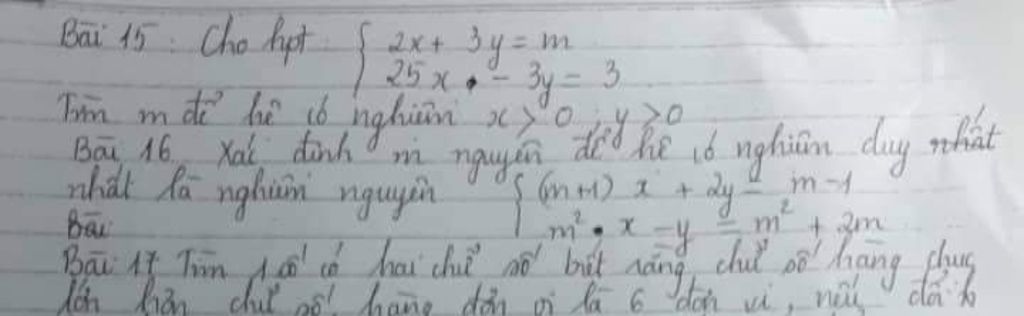 Bài 15: Cho hpt { 2x + 3y = m
25x - 3y = 3
Tìm m để hệ có nghiệm x > 0 ; y > 0
Bài 16 Xác định m nguyên để hệ có nghiệm duy nhất
nhất là nghiệm nguyên { (m+1) x + 2y = m-1
m² • x - y = m² + 2m
Bài
Bài 17 Tìm 1 số có hai chữ số biết rằng, chữ số hàng chục
lớn hơn chữ số hàng đơn vị là 6 đơn vị, nếu